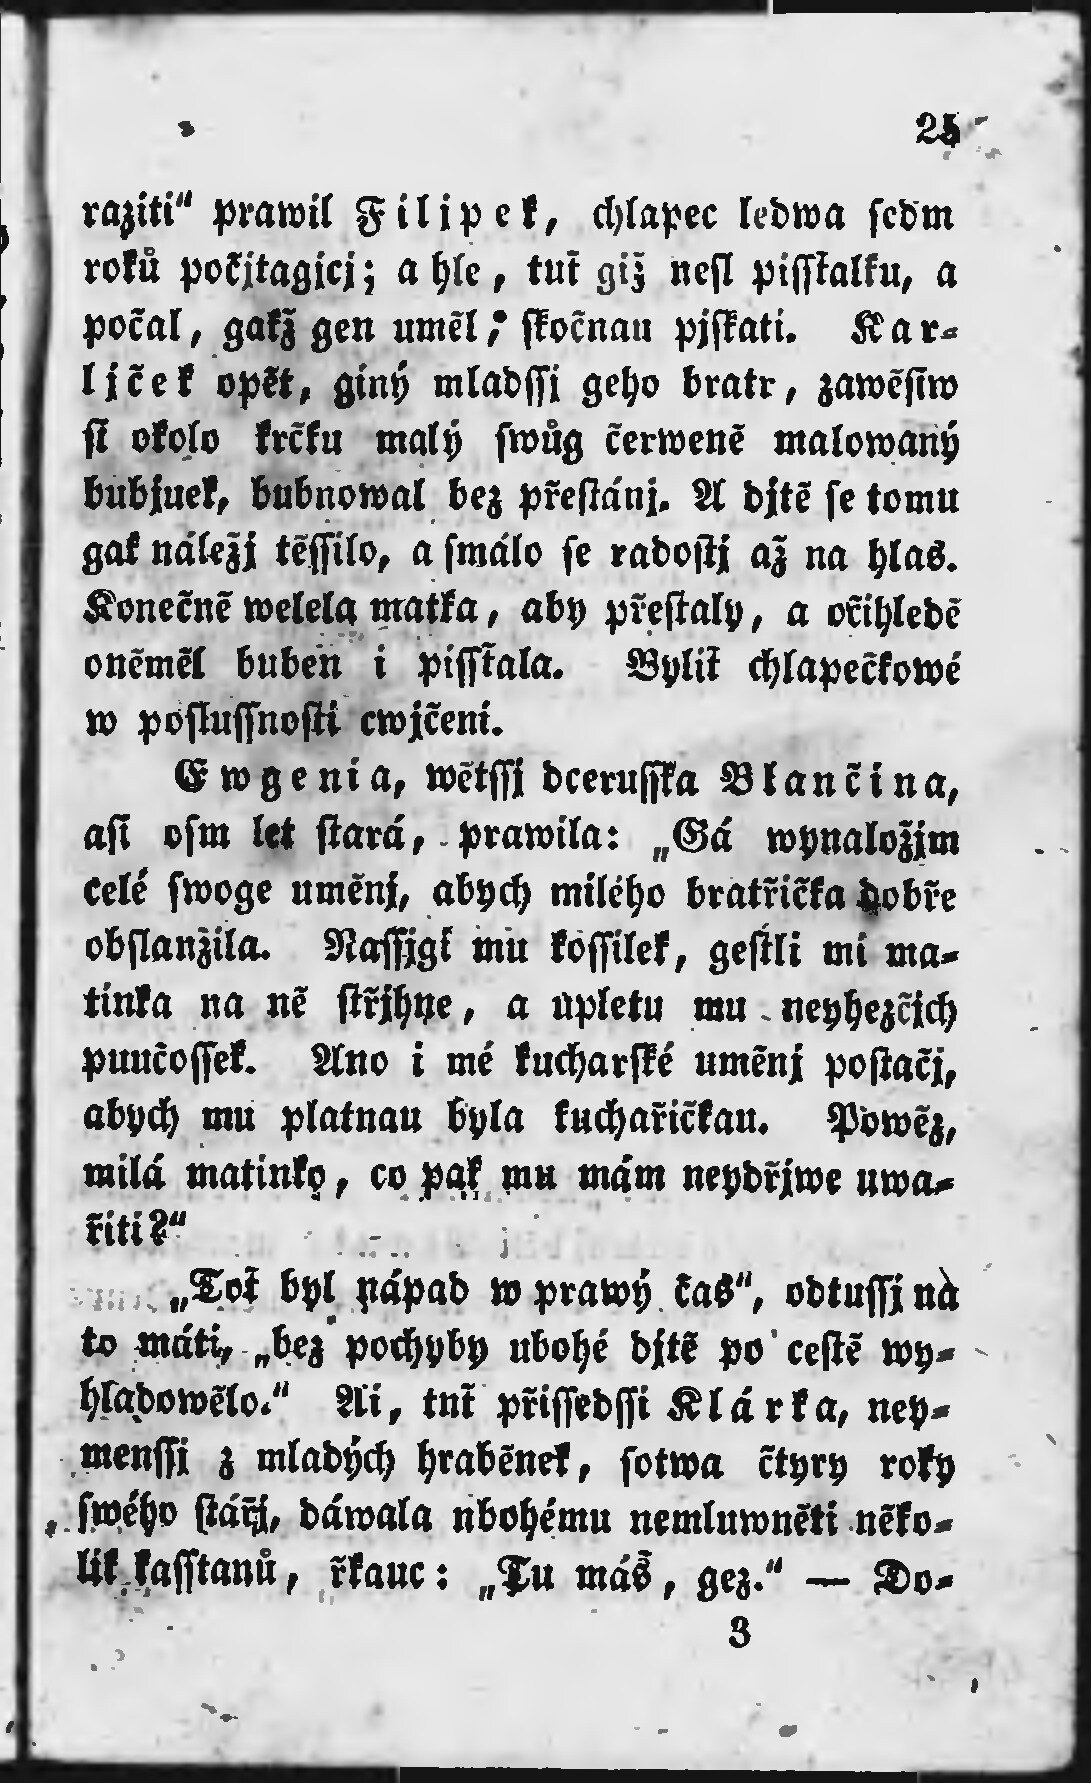 25
raziti“ prawil Filipek, chlapec ledwa sedm
roků počjtagjcj; a hle, tuť giž nesl pisstalku, a
počal, gakž gen uměl, skočnau pjskati. Kar-
ljček opět, giný mladssi geho bratr, zawěsiw
si okolo krčku malý swůg čerweně malowaný
bubjnek, bubnowal bez přestánj. A djtě se tomu
gak náležj těssilo, a smálo se radostj až na hlas.
Konečně welela matka, aby přestaly, a ořihledě
oněměl buben i pissťala. Byliť chlapečkowé
w poslussnosti cwjčeni.
Ewgenia, wětssj dcerusska Blančina,
asi osm let stará, prawila: „Gá wynaložjm
celé swoge uměnj, abych milého bratřička dobře
obslaužila. Nassigi mu kossilek, gestli mi ma-
tinka na ně střjhne, a upletu mu neyhezčjch
punčossek. Ano i mé kucharské uměnj postačj,
abych mu platnau byla kuchařičkau. Powěz,
milá matinko, co pak mu mám neydřjwe uwa-
řiti?“
„Toť byl nápad w prawý čas“, odtussj na
to máti, „bez pochyby ubohé djtě po cestě wy-
hladowělo.“ Ai, tuť přissedssi Klárka, ney-
menssj z mladých hraběnek, sotwa čtyry roky
swého stářj, dáwala ubohému nemluwněti něko-
lik kasstanů, řkauc: „Tu máš, gez.“ — Do-
3